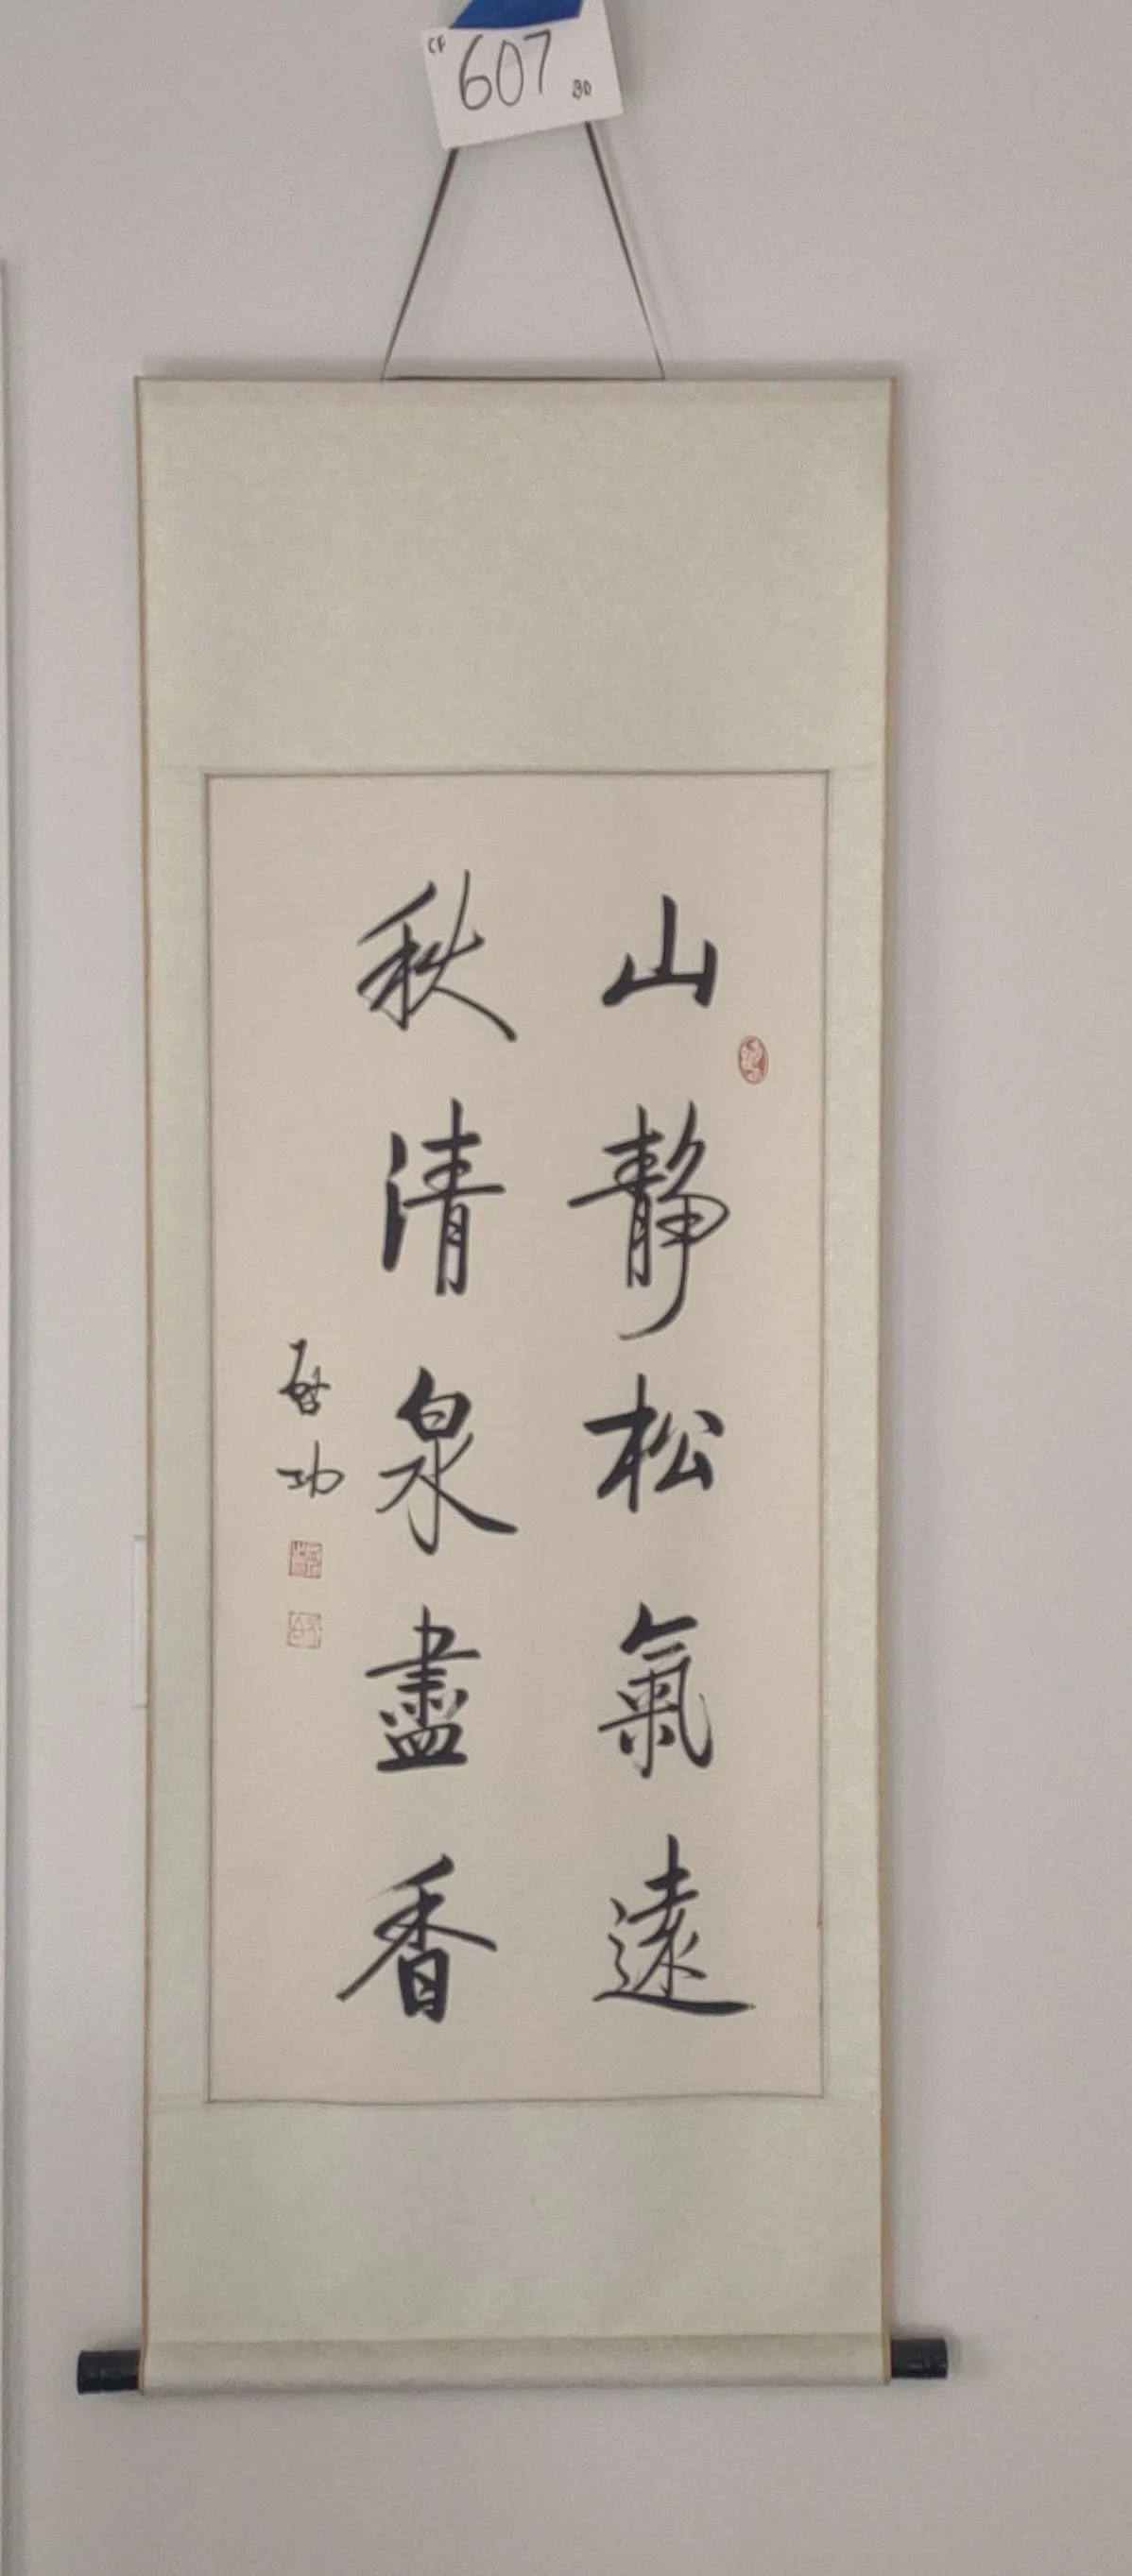 CF 607 30
山靜松氣遠
秋清泉盡香
啓功